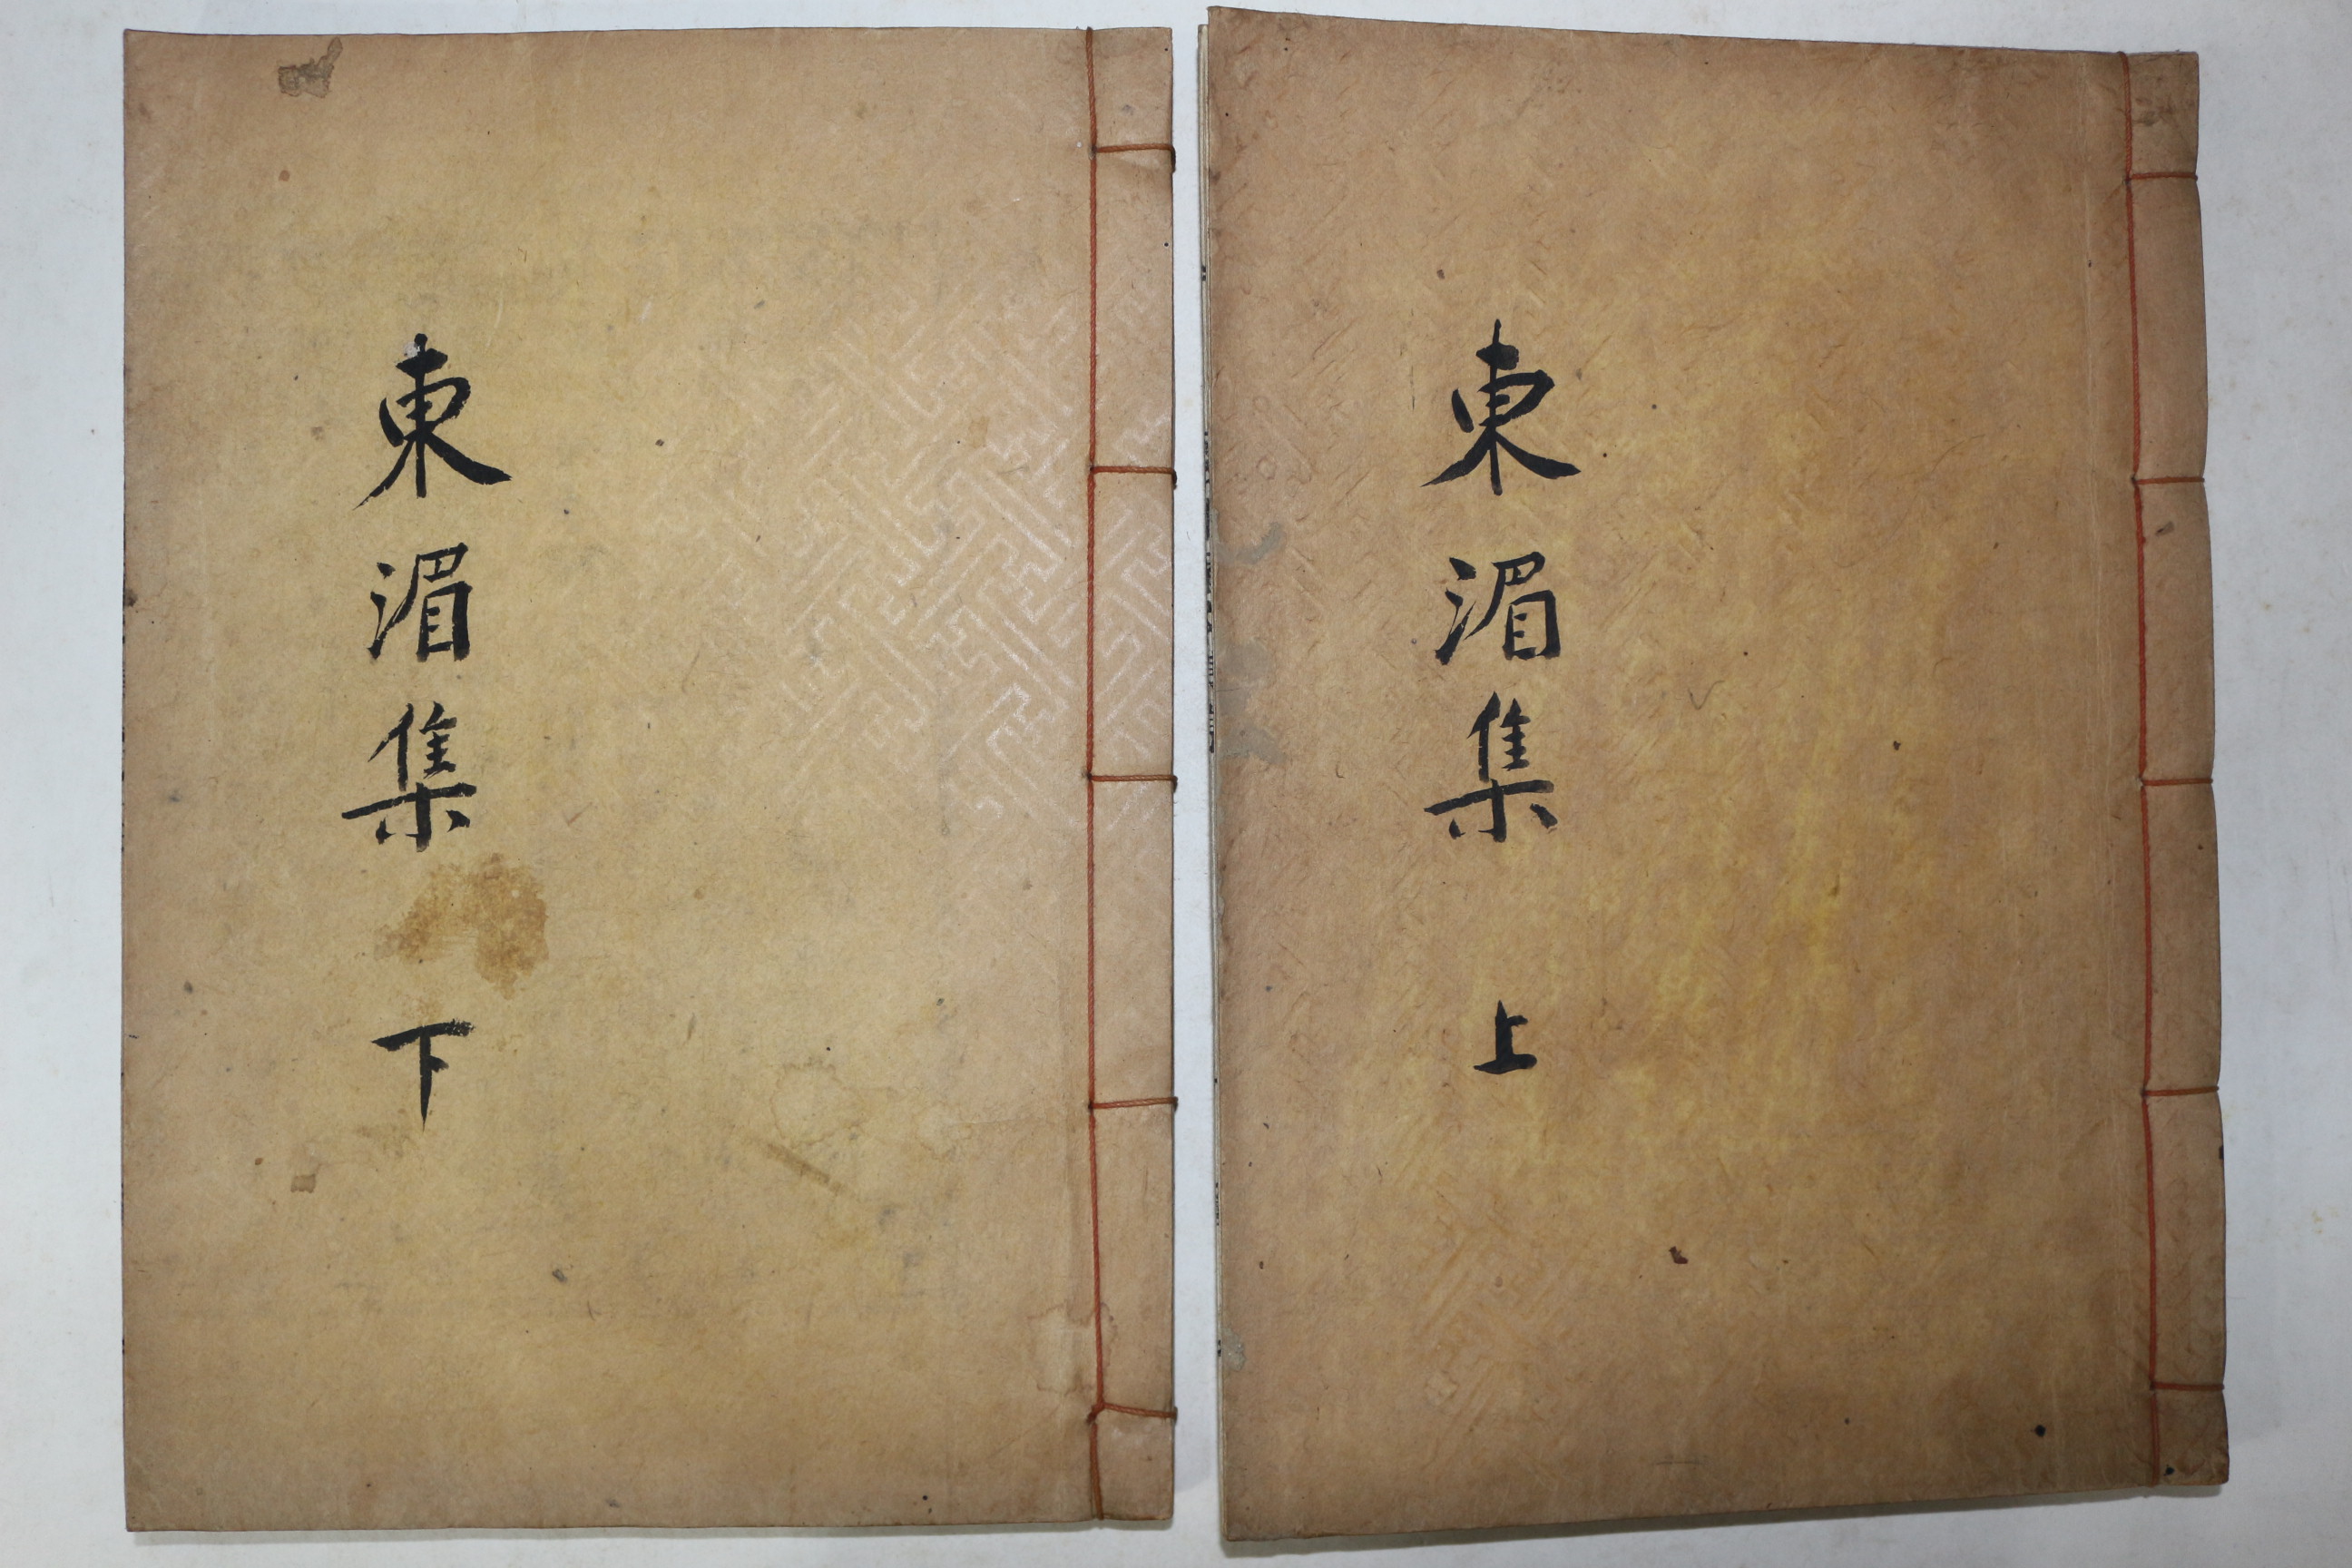 東湄集 上
東湄集 下